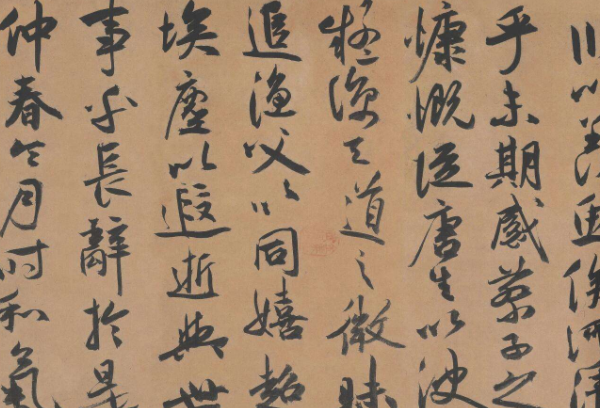 川以羨魚俟河清
乎未期感蔡子之
慷慨從唐生以決
疑諒天道之微昧
追漁父以同嬉超
埃塵以遐逝與世
事乎長辭於是
仲春令月時和氣